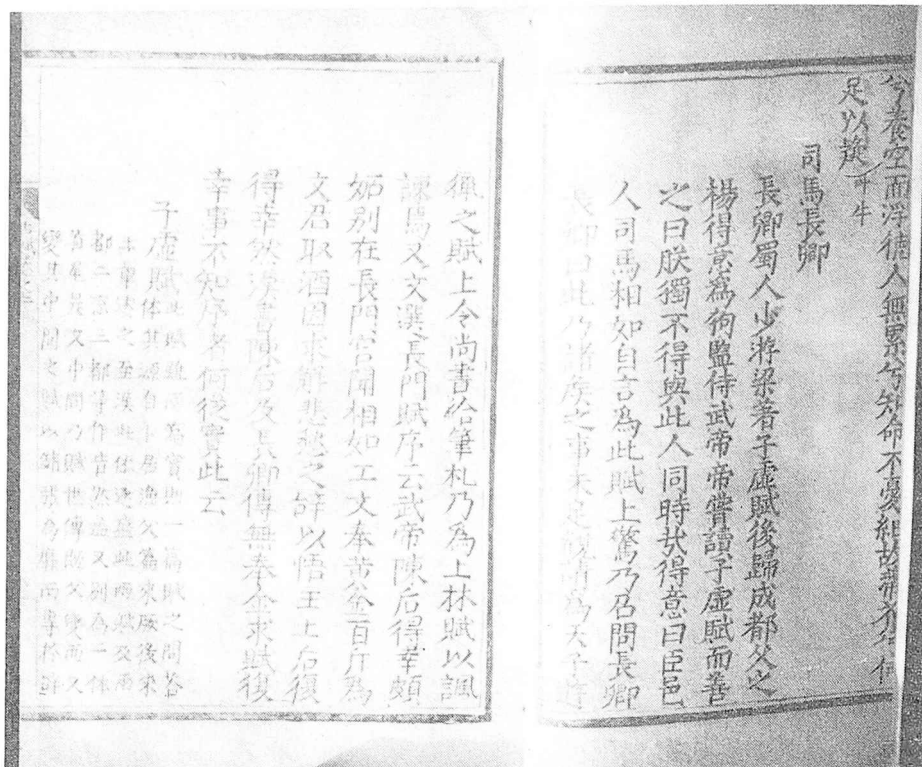 兮養空而浮德人無累兮知命不憂細故蔕芥何
足以疑
司馬長卿
長卿蜀人少游梁著子虛賦後歸成都久之
楊得意為狗監侍武帝帝嘗讀子虛賦而善
之曰朕獨不得與此人同時哉得意曰臣邑
人司馬相如自言為此賦上驚乃召問長卿
長卿曰此乃諸侯之事未足觀請為天子游
獵之賦上令尚書給筆札乃為上林賦以諷
諫焉又文選長門賦序云武帝陳后得幸頗
妬別在長門宮聞相如工文奉黃金百斤為
文君取酒因求解悲愁之辭以悟主上后復
得幸然漢書陳后及長卿傳無奉金求賦復
幸事不知序者何從實此云
子虛賦
此賦雖兩篇實則一篇賦之問答
體其源自卜居漁父篇來厥後宋
玉輩述之至漢此體遂盛此兩賦及兩
都二京三都等作皆然蓋又別為一體
首尾是文中間乃賦世傳既久變而又
變其中間之賦以鋪張為靡而專於辭